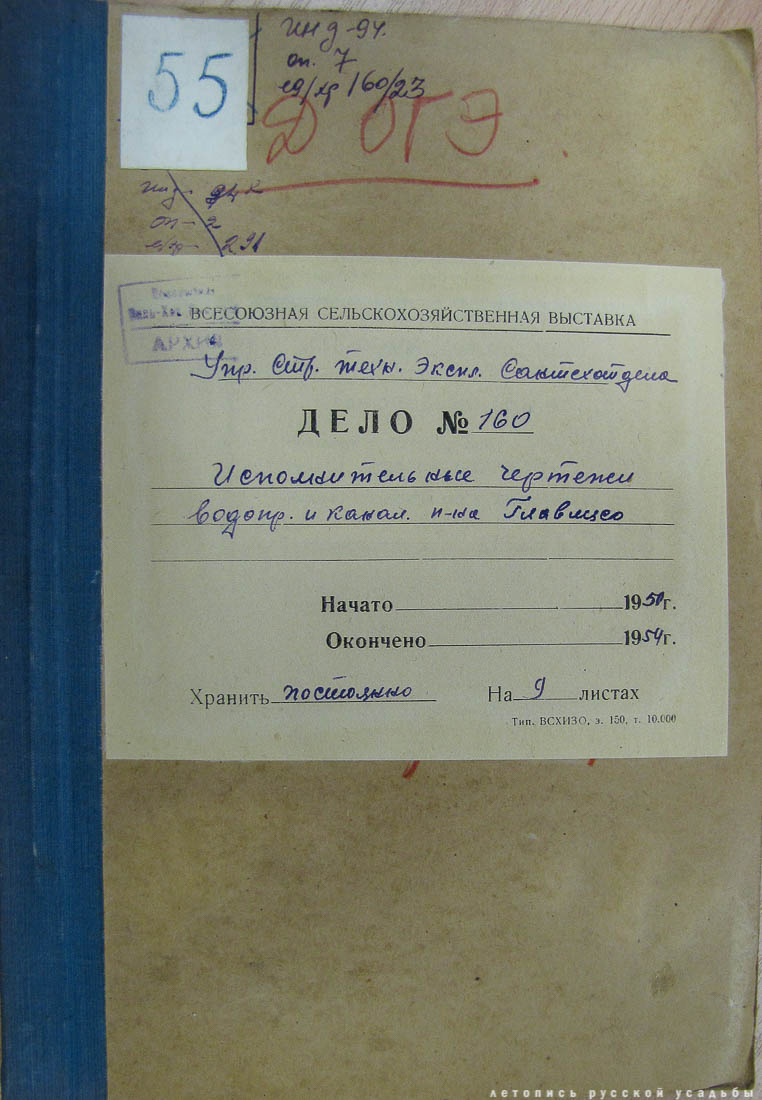 55
инд-94.
оп. 7
ед/хр 160/23
Д ОГЭ
оп-2
291
АРХИВ
ВСЕСОЮЗНАЯ СЕЛЬСКОХОЗЯЙСТВЕННАЯ ВЫСТАВКА
Упр. Стр. техн. Экспл. Сантехотдела
ДЕЛО № 160
Исполнительные чертежи
водопр. и канал. п-на Главмясо
Начато 1950г.
Окончено 1954г.
Хранить постоянно На 9 листах
Тип. ВСХИЗО, з. 150, т. 10.000
летопись русской усадьбы